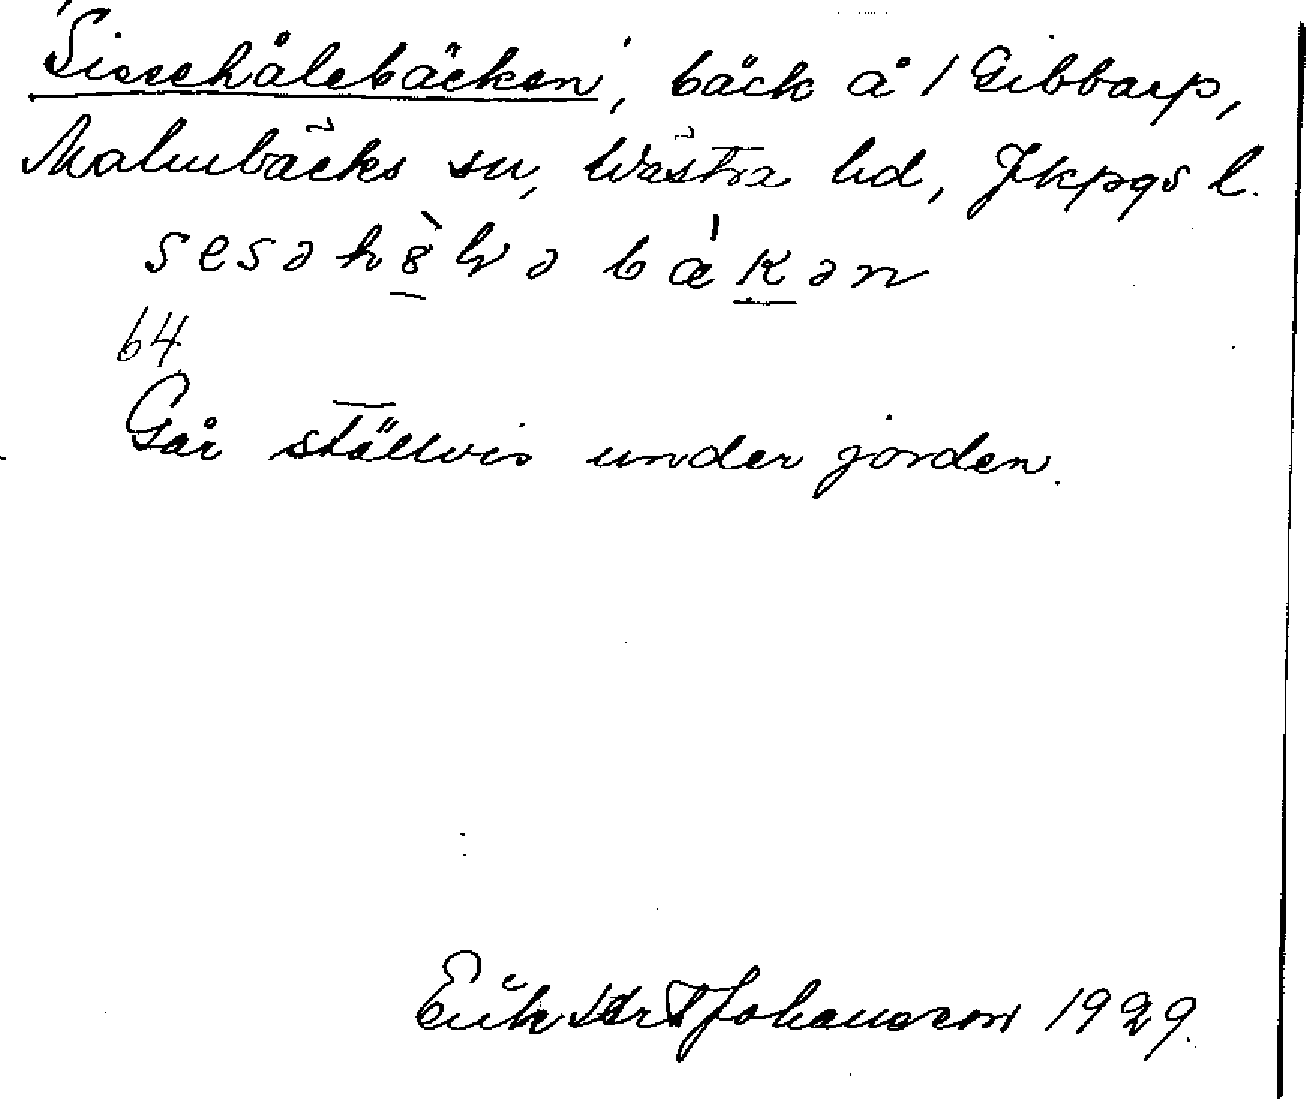 Sissehålebäcken, bäck å / Gibbarp,
Malmbäcks sn, Västra hd, Jkpgs l.
sesəhòlə bǽkən
64
Går ställvis under jorden.
Erik Johansson 1929.